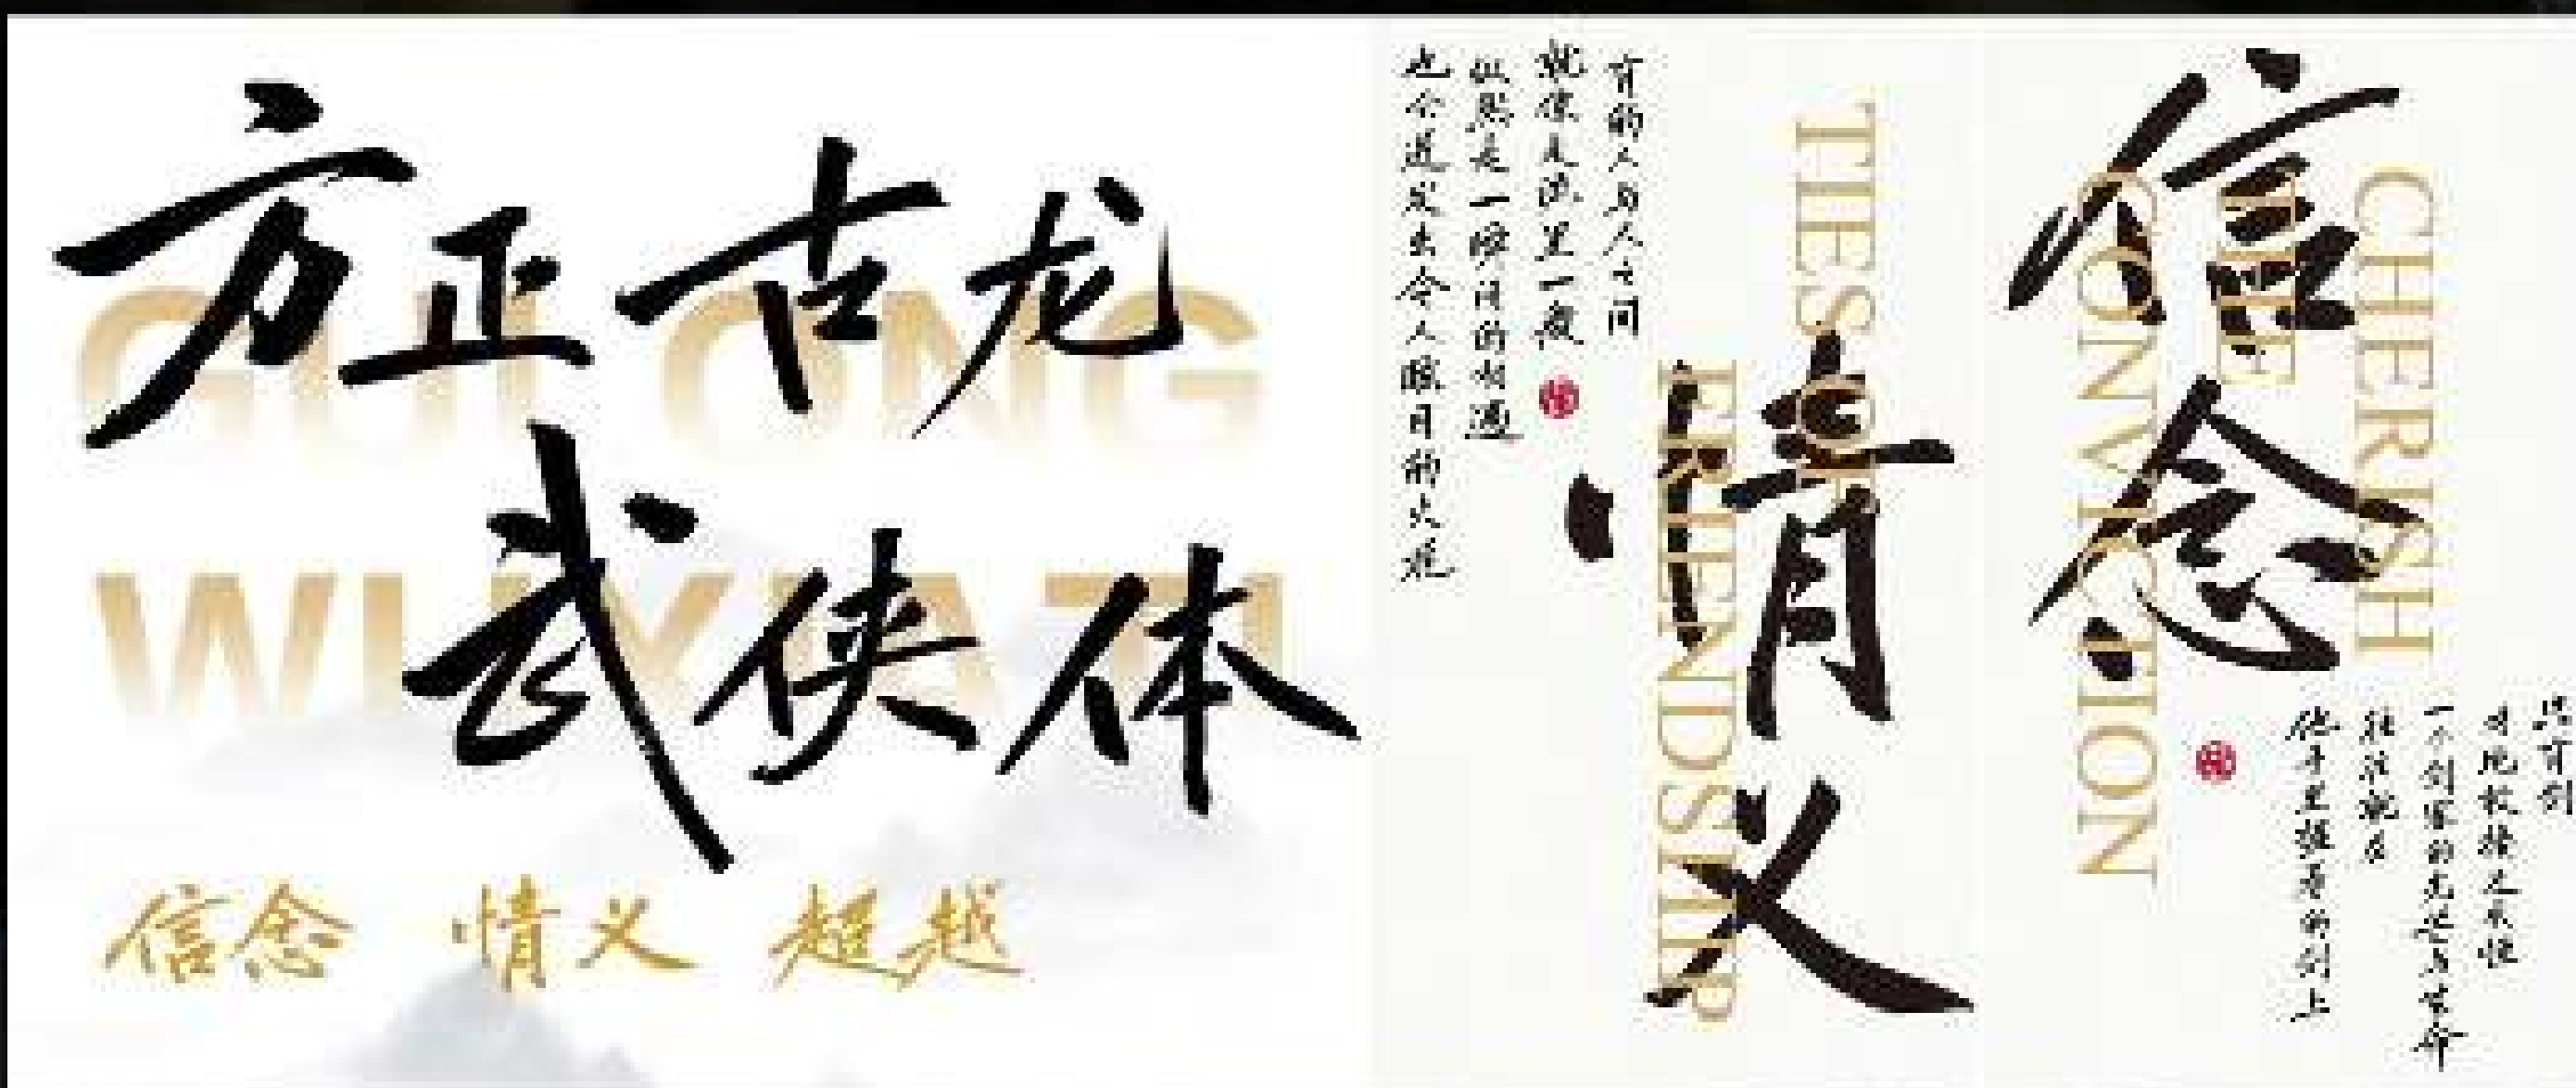 方正古龙
武侠体
GULONG
WUXIATI
信念 情义 超越
有的人与人之间
就像是流星一般
纵然是一瞬间的相遇
也会迸发出令人眼目的火花
TIES
OF
FRIENDSHIP
情义
信念
CHERISH
THE
CONVICTION
只有剑
一个剑客的光芒与生命
往往就在
他手里握着的剑上